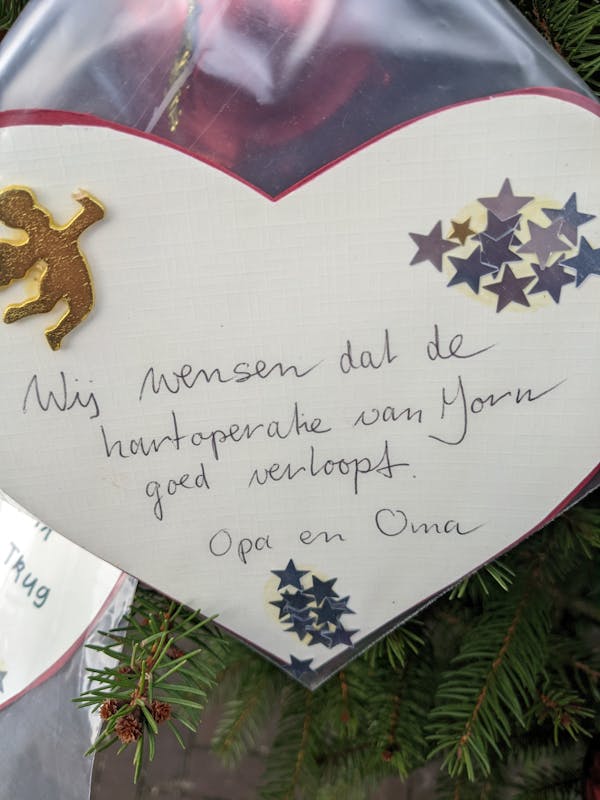 Wij wensen dat de
hartoperatie van Yorn
goed verloopt.
Opa en Oma
TRug